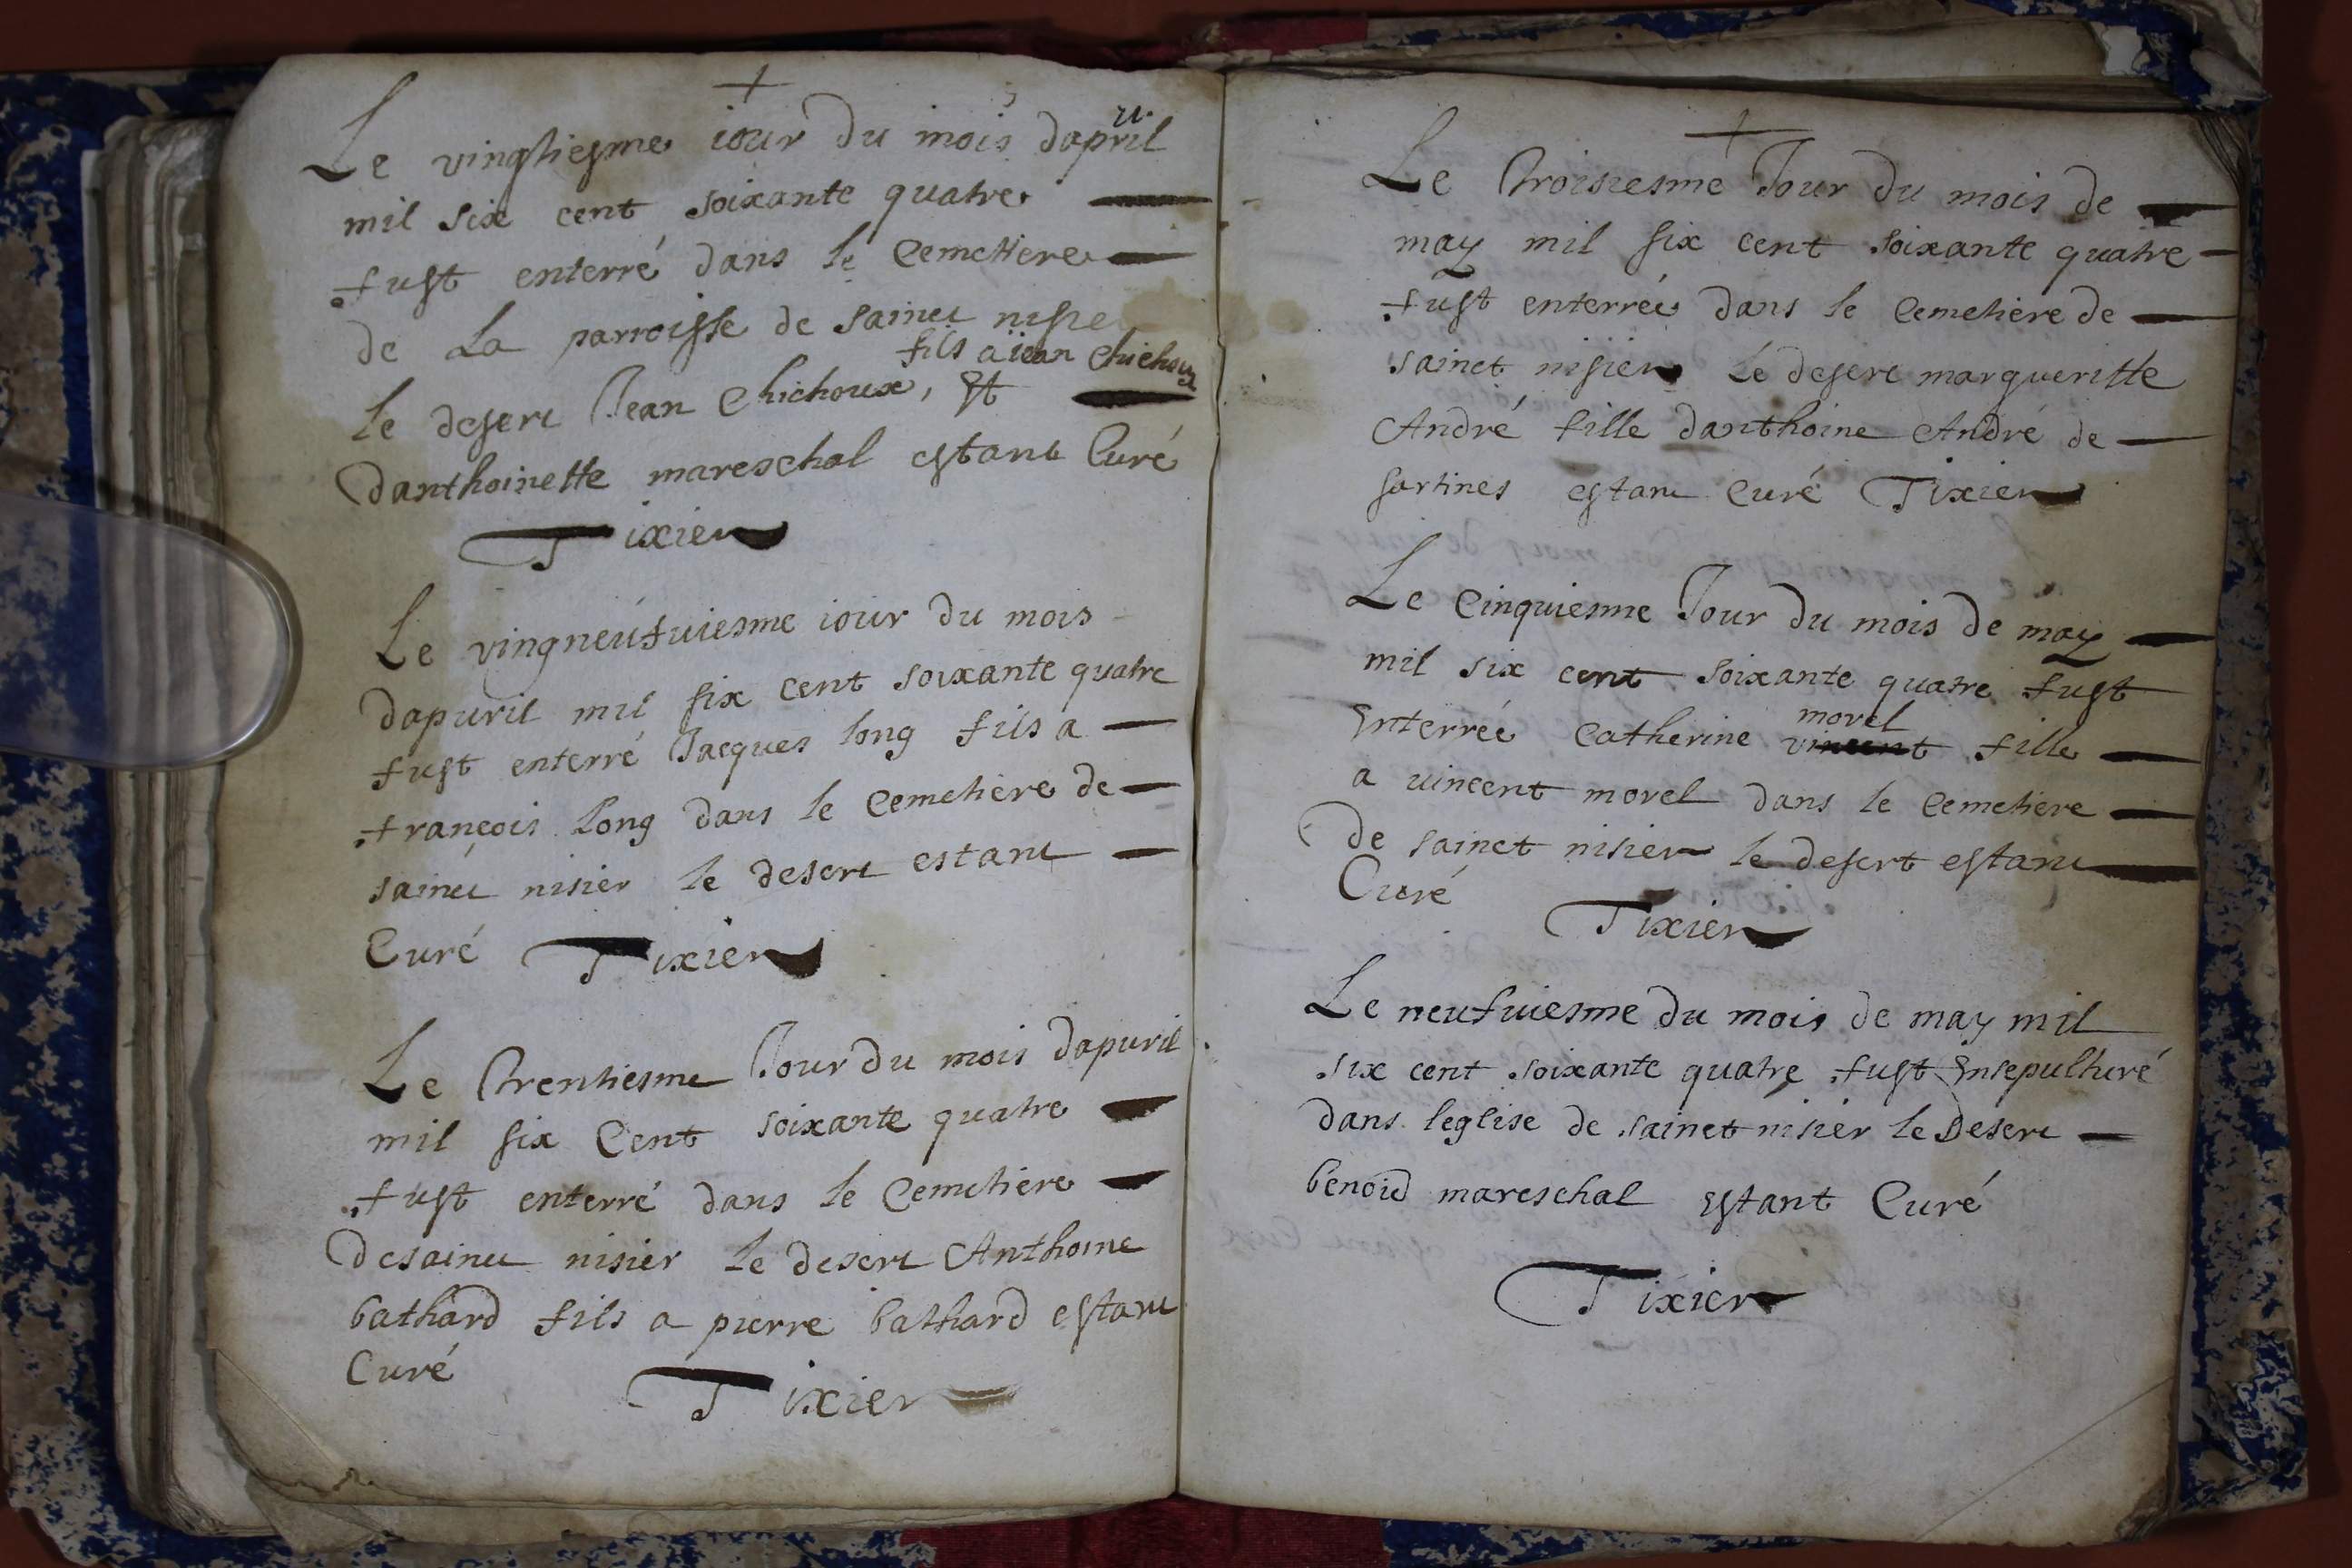 +
Le vingtiesme iour du mois dapuril
mil six cent soixante quatre
fust enterré dans le cemetiere
de La parroisse de sainct nisie
le desert Jean Chichoux, fils a iean Chichoux Et
danthoinette mareschal estant Curé
Tixier
Le vingneufuiesme iour du mois
dapuril mil six cent soixante quatre
fust enterré Jacques long fils a
françois Long dans le Cemetiere de
sainct nisier le desert estant
Curé Tixier
Le Trentiesme Jour du mois dapuril
mil six Cent soixante quatre
fust enterré dans le Cemetiere
de sainct nisier le desert Anthoine
bathard fils a pierre bathard estant
Curé
Tixier
+
Le Troisiesme Jour du mois de
may mil six cent soixante quatre
fust enterrée dans le Cemetiere de
sainct nisier Le desert margueritte
André fille danthoine André de
sartines estant Curé Tixier
Le Cinquiesme Jour du mois de may
mil six cent soixante quatre fust
Enterrée Catherine vincent morel fille
a uincent morel dans le Cemetiere
de sainct nisier le desert estant
Curé
Tixier
Le neufuiesme du mois de may mil
six cent soixante quatre fust Ensepulturé
dans leglise de sainct nisier le Desert
benoid mareschal Estant Curé
Tixier